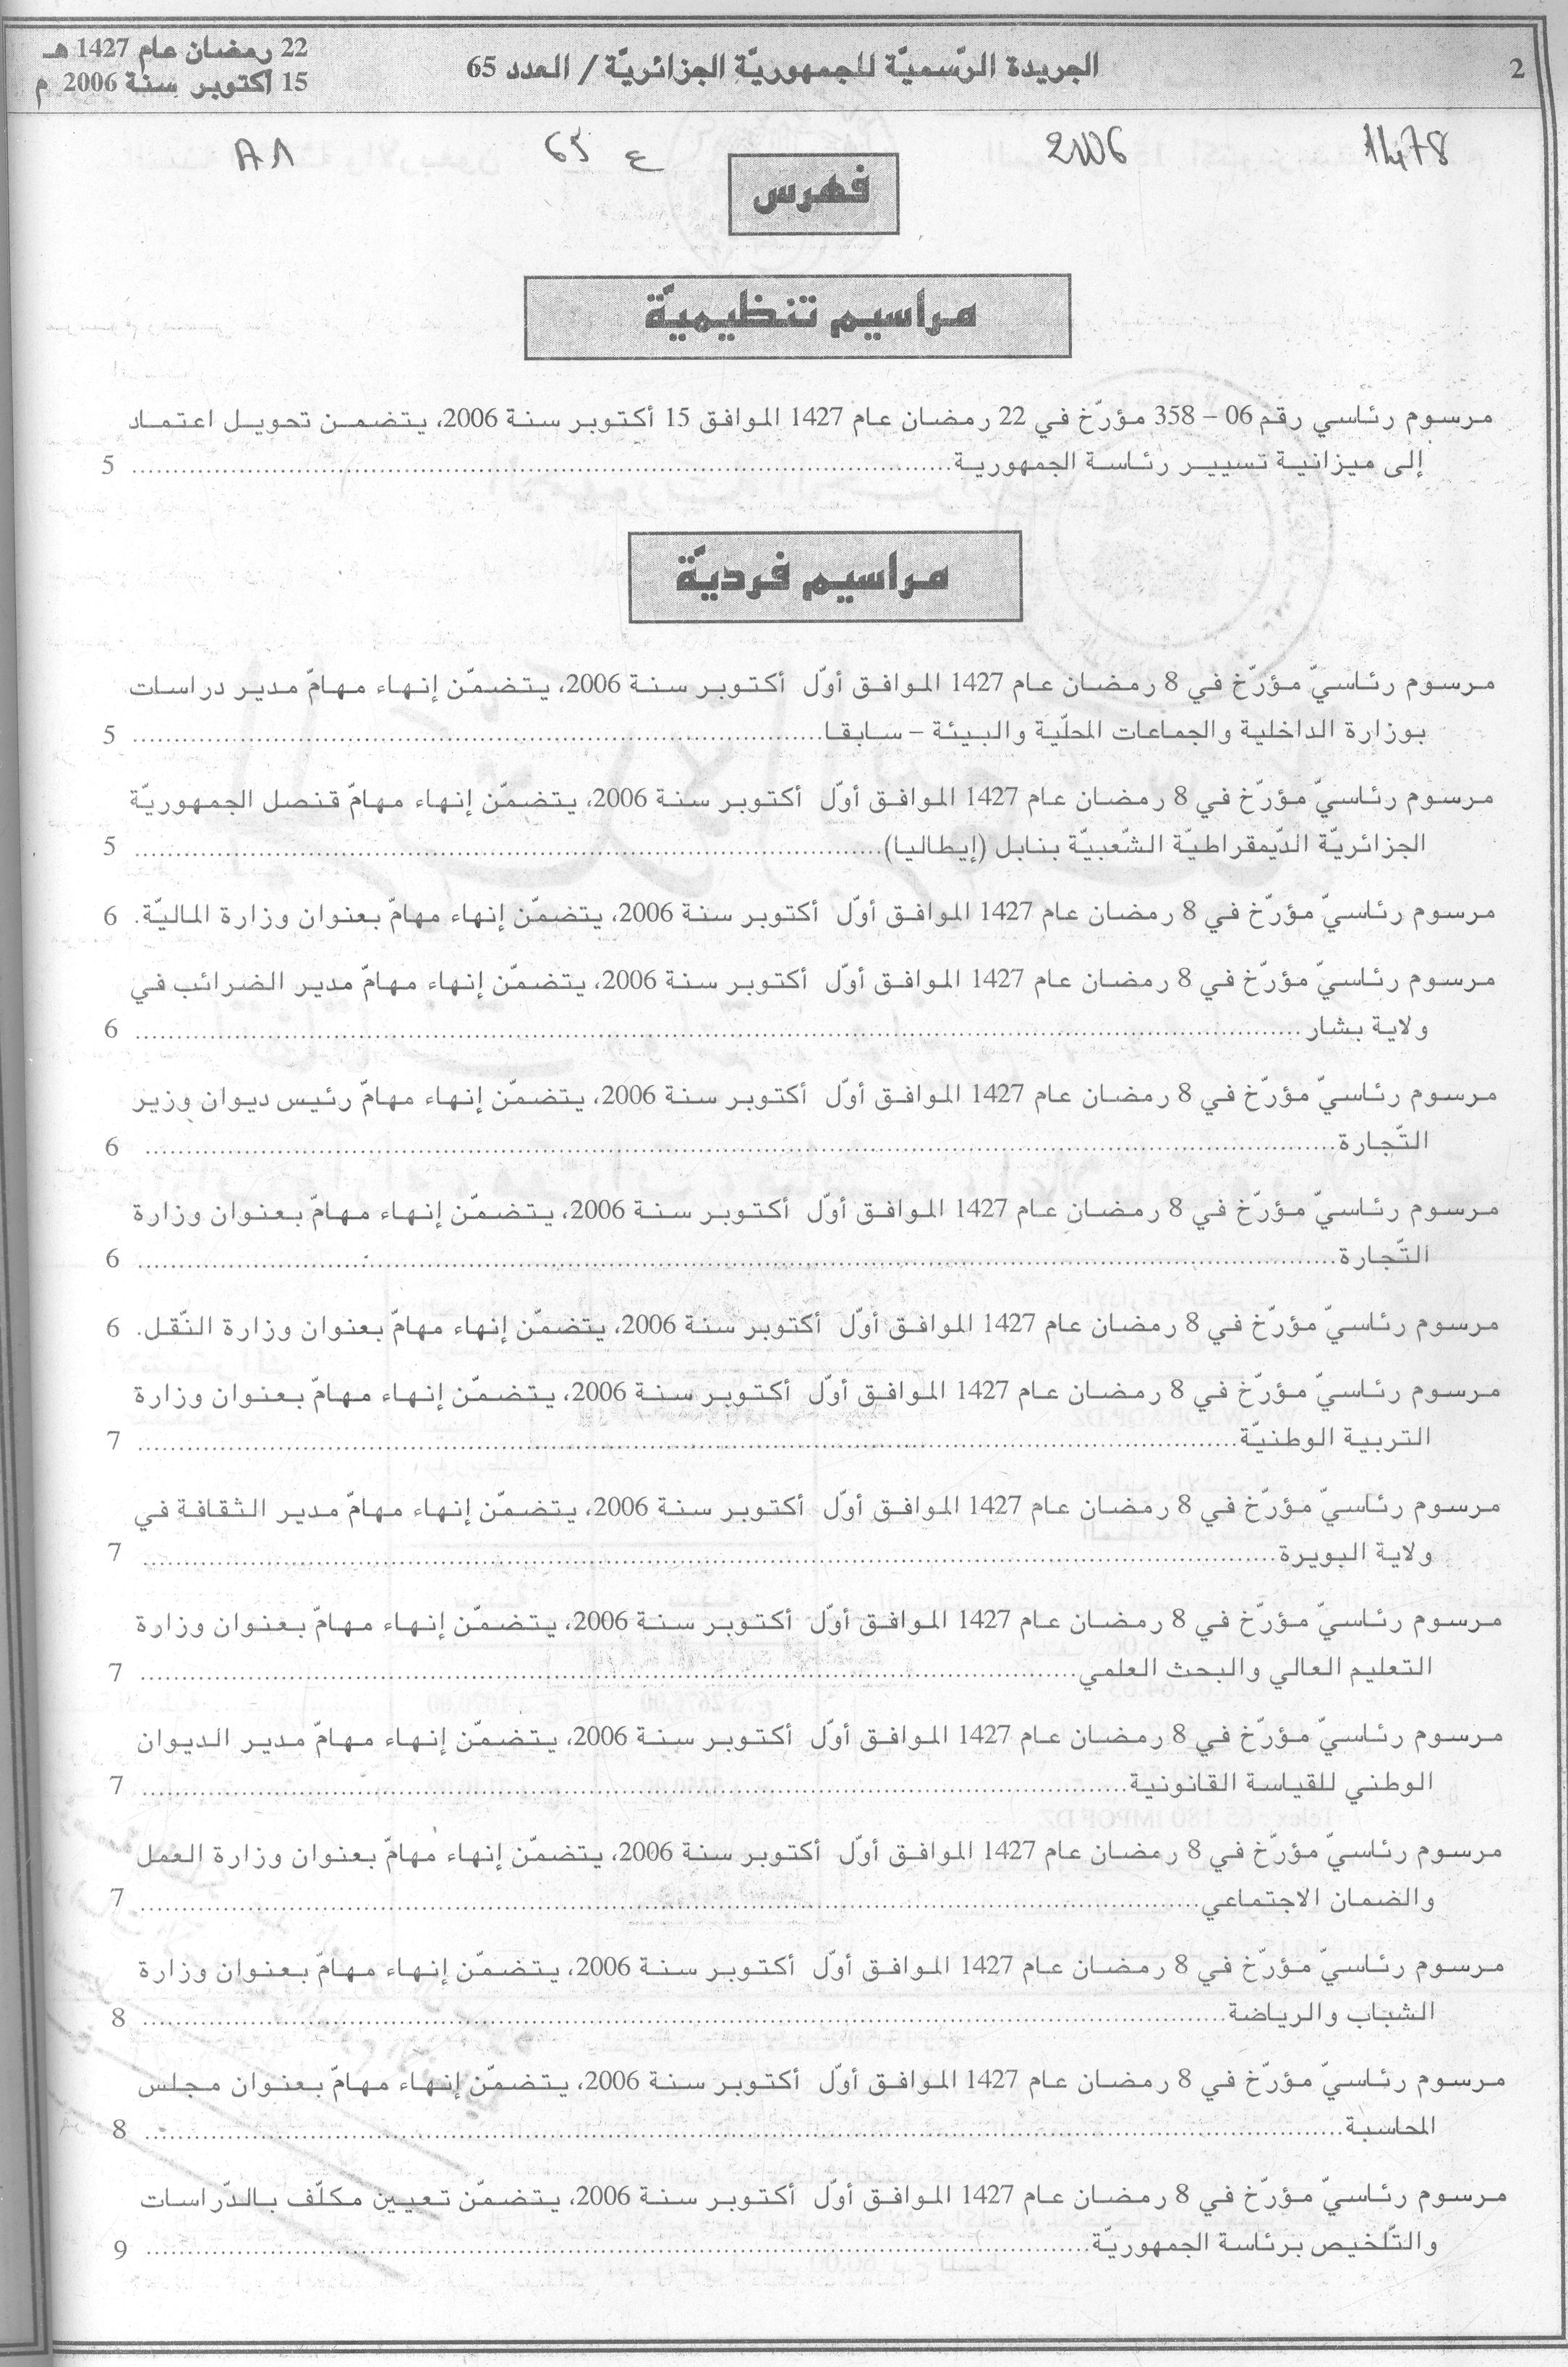 2
الجريدة الرّسميّة للجمهوريّة الجزائريّة / العدد 65
22 رمضان عام 1427 هـ
15 أكتوبر سنة 2006 م
1478 2006 ع 65
فهرس
مراسيم تنظيميّة
مرسوم رئاسي رقم 06 – 358 مؤرّخ في 22 رمضان عام 1427 الموافق 15 أكتوبر سنة 2006، يتضمن تحويل اعتماد
إلى ميزانية تسيير رئاسة الجمهورية........ 5
مراسيم فرديّة
مرسوم رئاسيّ مؤرّخ في 8 رمضان عام 1427 الموافق أوّل أكتوبر سنة 2006، يتضمّن إنهاء مهامّ مدير دراسات
بوزارة الداخلية والجماعات المحلّية والبيئة – سابقا........ 5
مرسوم رئاسيّ مؤرّخ في 8 رمضان عام 1427 الموافق أوّل أكتوبر سنة 2006، يتضمّن إنهاء مهامّ قنصل الجمهوريّة
الجزائريّة الدّيمقراطيّة الشّعبيّة بنابل (إيطاليا)........ 5
مرسوم رئاسيّ مؤرّخ في 8 رمضان عام 1427 الموافق أوّل أكتوبر سنة 2006، يتضمّن إنهاء مهامّ بعنوان وزارة الماليّة. 6
مرسوم رئاسيّ مؤرّخ في 8 رمضان عام 1427 الموافق أوّل أكتوبر سنة 2006، يتضمّن إنهاء مهامّ مدير الضرائب في
ولاية بشار........ 6
مرسوم رئاسيّ مؤرّخ في 8 رمضان عام 1427 الموافق أوّل أكتوبر سنة 2006، يتضمّن إنهاء مهامّ رئيس ديوان وزير
التّجارة........ 6
مرسوم رئاسيّ مؤرّخ في 8 رمضان عام 1427 الموافق أوّل أكتوبر سنة 2006، يتضمّن إنهاء مهامّ بعنوان وزارة
التّجارة........ 6
مرسوم رئاسيّ مؤرّخ في 8 رمضان عام 1427 الموافق أوّل أكتوبر سنة 2006، يتضمّن إنهاء مهامّ بعنوان وزارة النّقل. 6
مرسوم رئاسيّ مؤرّخ في 8 رمضان عام 1427 الموافق أوّل أكتوبر سنة 2006، يتضمّن إنهاء مهامّ بعنوان وزارة
التربية الوطنيّة........ 7
مرسوم رئاسيّ مؤرّخ في 8 رمضان عام 1427 الموافق أوّل أكتوبر سنة 2006، يتضمّن إنهاء مهامّ مدير الثقافة في
ولاية البويرة........ 7
مرسوم رئاسيّ مؤرّخ في 8 رمضان عام 1427 الموافق أوّل أكتوبر سنة 2006، يتضمّن إنهاء مهامّ بعنوان وزارة
التعليم العالي والبحث العلمي........ 7
مرسوم رئاسيّ مؤرّخ في 8 رمضان عام 1427 الموافق أوّل أكتوبر سنة 2006، يتضمّن إنهاء مهامّ مدير الديوان
الوطني للقياسة القانونية........ 7
مرسوم رئاسيّ مؤرّخ في 8 رمضان عام 1427 الموافق أوّل أكتوبر سنة 2006، يتضمّن إنهاء مهامّ بعنوان وزارة العمل
والضمان الاجتماعي........ 7
مرسوم رئاسيّ مؤرّخ في 8 رمضان عام 1427 الموافق أوّل أكتوبر سنة 2006، يتضمّن إنهاء مهامّ بعنوان وزارة
الشباب والرياضة........ 8
مرسوم رئاسيّ مؤرّخ في 8 رمضان عام 1427 الموافق أوّل أكتوبر سنة 2006، يتضمّن إنهاء مهامّ بعنوان مجلس
المحاسبة........ 8
مرسوم رئاسيّ مؤرّخ في 8 رمضان عام 1427 الموافق أوّل أكتوبر سنة 2006، يتضمّن تعيين مكلّف بالدّراسات
والتّلخيص برئاسة الجمهوريّة........ 9